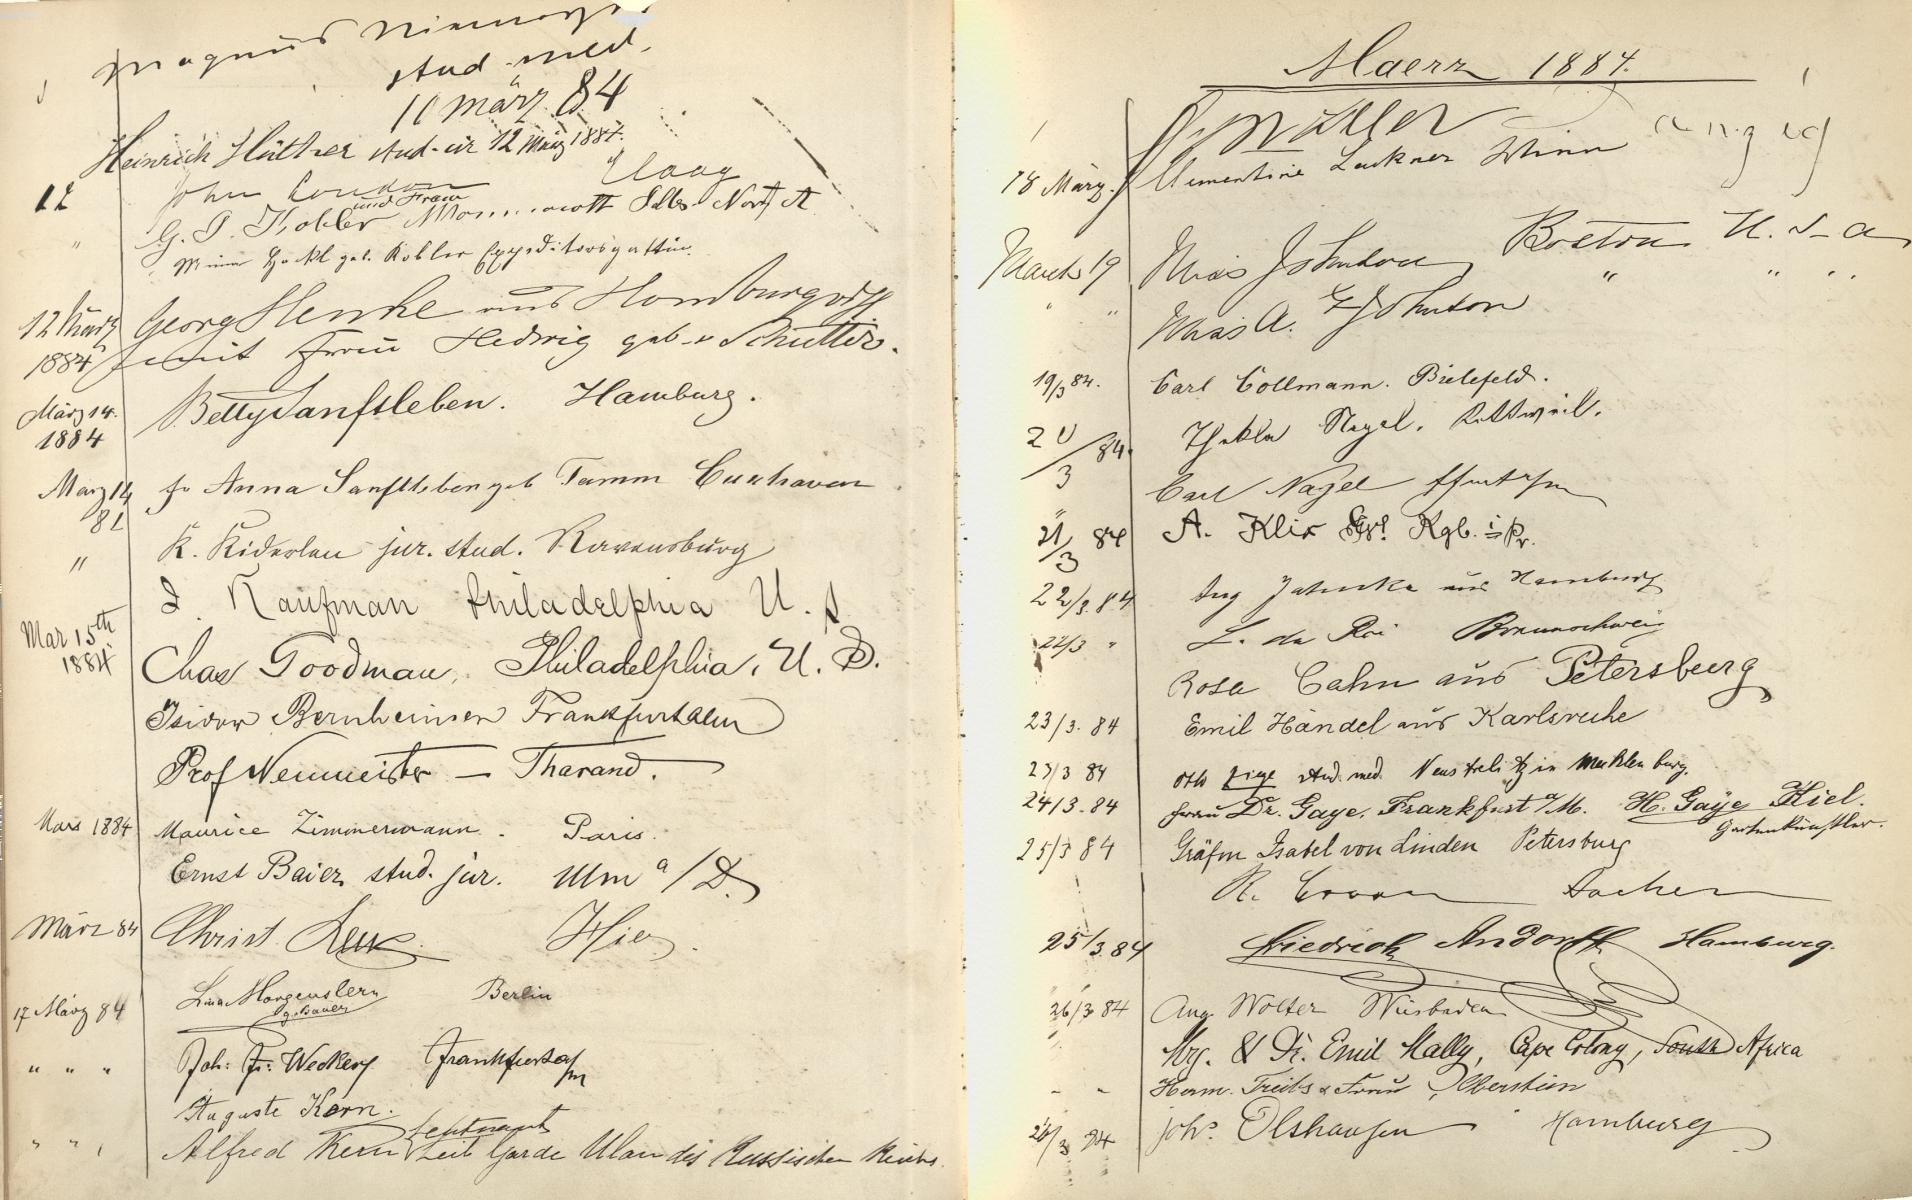 Magnus
stud. med.
11 März 84
Heinrich Hüttner stud. iur 12 März 1884.
12 John London Haag
und Frau
" G. P. Kobler North A
geb. Kobler Expeditorsgattin.
12 März Georg Henke aus Homburg
1884 mit Frau Hedwig geb. v Schütter.
März 14. Betty Sanftleben. Hamburg.
1884
Marz 14 Fr Anna Sanftleben geb Tamm Cuxhaven
" K. Kiderlen jur. stud. Ravensburg
I Kaufman Philadelphia U. S.
Mar 15th
1884 Chas Goodman, Philadelphia, U. S.
Isidor Bernheimer Frankfurt a/M
Prof Neumeister — Tharand.
Mars 1884 Maurice Zimmermann. Paris.
Ernst Baier stud. jur. Ulm a/D.
März 84 Christ. Hier.
17 März 84 Lina Morgenstern Berlin
g. Bauer
" " " Joh: Fr: Weckerf Frankfurt a/m
Auguste Kern.
Leutnant
" " " Alfred Kern Leib Garde Ulan des Russischen Reichs.
Maerz 1884.
Müller
18 März. Clementine Lackner Wien
March 19 Miss Johnston Boston U. S. A
" " Miss A. Johnston " " "
19/3 84. Carl Collmann. Bielefeld.
20/3 84. Thekla Nagel. Rottweil.
Carl Nagel
21/3 84 A. Klix Kgb. i Pr.
22/3. 84 Aug Jahncke aus Hamburg
22/3 " L. du Roi Braunschweig
Rosa Cahn aus Petersburg
23/3. 84 Emil Händel aus Karlsruhe
23/3 84 stud. med. Neustrelitz in Mecklenburg.
24/3. 84 Frau Dr. Gaye, Frankfurt a/M. H. Gaye Kiel.
Gartenkünstler.
25/3 84 Gräfin Isabel von Linden Petersburg
R. Aachen
25/3. 84 Friedrich Andorff Hamburg.
26/3 84 Aug. Wolter Wiesbaden
Mrs. & Dr. Emil Mally, Cape Colony, South Africa
" " Herm. Treibs & Frau, Oberstein
26/3 84 Johs. Olshausen Hamburg